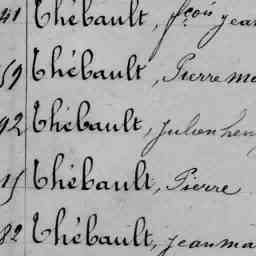 41 Thébault, fçois jean
59 Thébault, Pierre ma
92 Thébault, Julien hen
15 Thébault, Pierre
82 Thébault, jean ma